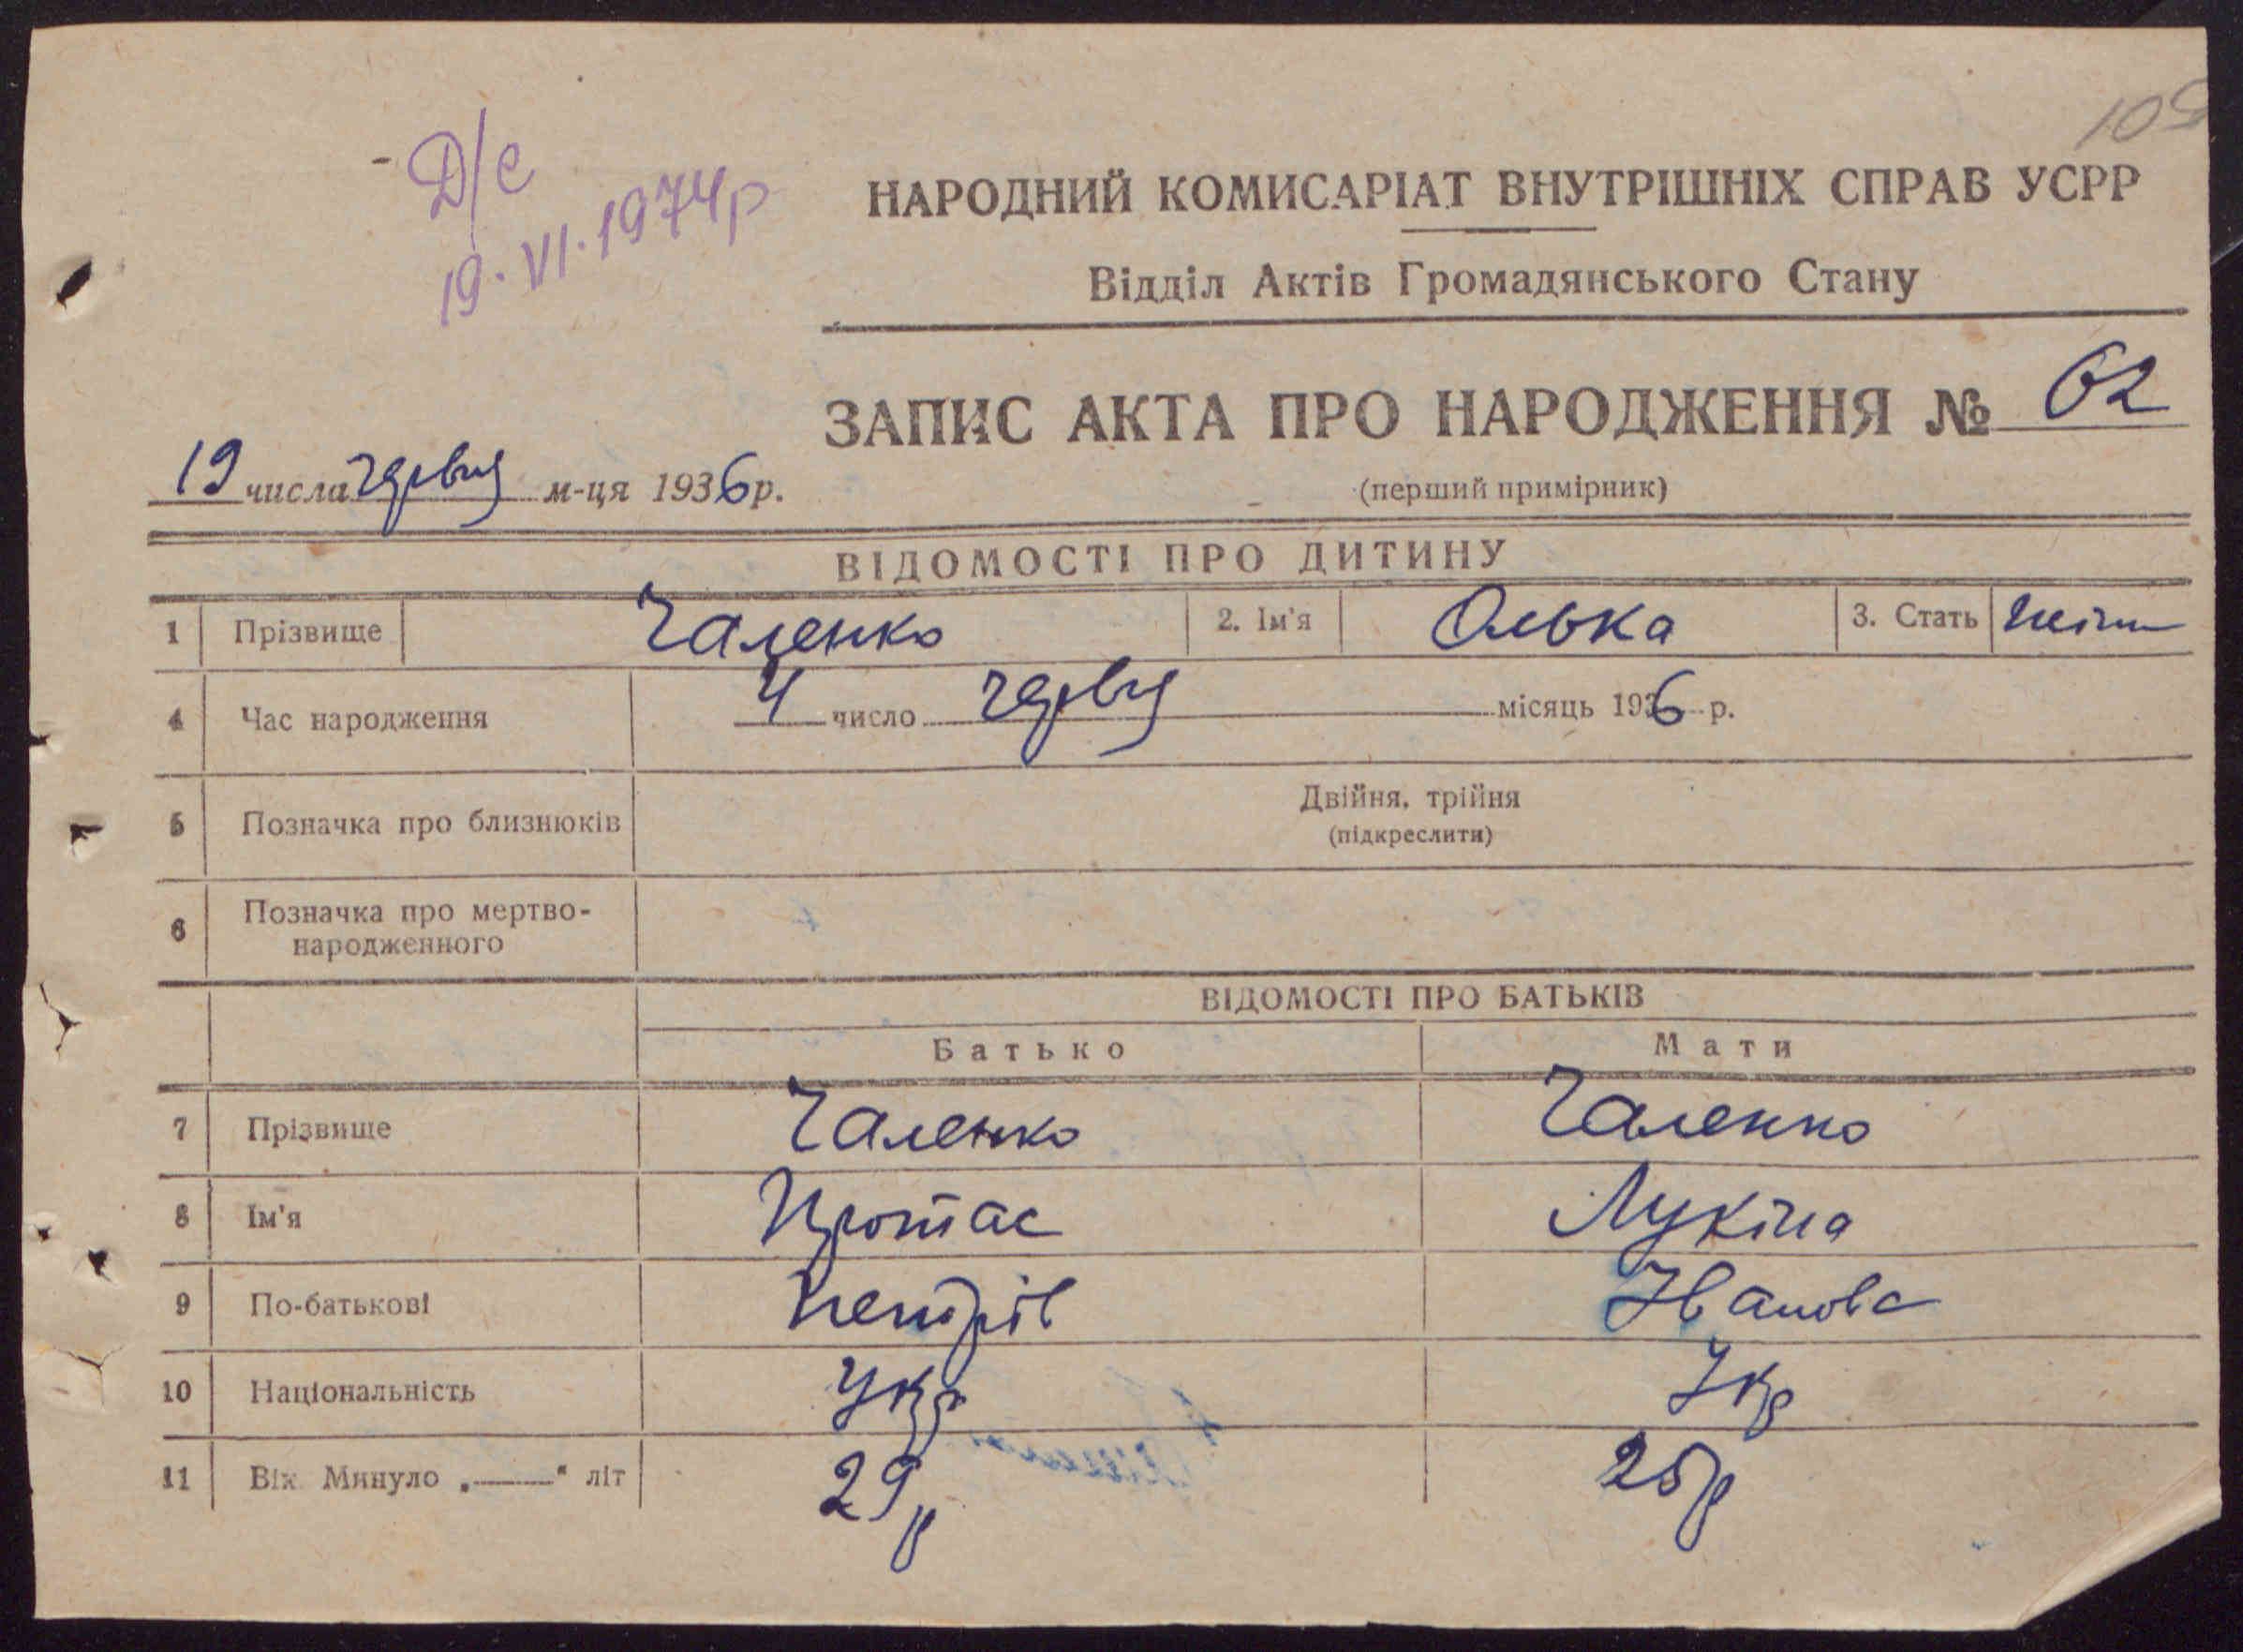 109
Д/с
19. VI. 1974р
НАРОДНИЙ КОМИСАРІАТ ВНУТРІШНІХ СПРАВ УСРР
Відділ Актів Громадянського Стану
ЗАПИС АКТА ПРО НАРОДЖЕННЯ № 62
19 числа червня м-ця 1936 р.
(перший примірник)
ВІДОМОСТІ ПРО ДИТИНУ
1 Прізвище Чаленко 2. Ім'я Олька 3. Стать жіноч
4 Час народження 4 число червня місяць 1936 р.
5 Позначка про близнюків Двійня, трійня
(підкреслити)
6 Позначка про мертво-
народженного
ВІДОМОСТІ ПРО БАТЬКІВ
Батько Мати
7 Прізвище Чаленко Чаленко
8 Ім'я Протас Лукіна
9 По-батькові Петрів Іванова
10 Національність Укр Укр
11 Вік Минуло „——" літ 29р 25р